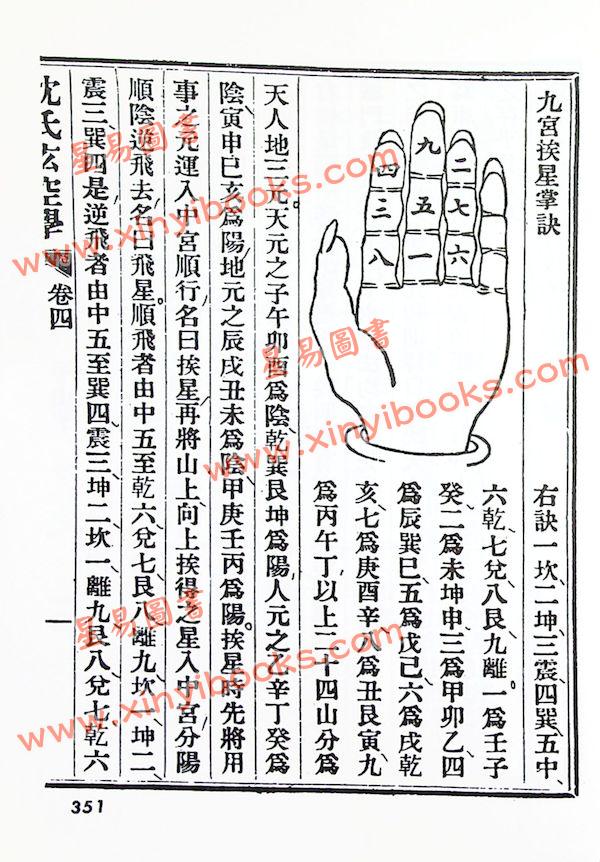 九宮挨星掌訣
四九二
三五七
八一六
右訣一坎、二坤、三震、四巽、五中、
六乾、七兌、八艮、九離。一爲壬子
癸、二爲未坤申、三爲甲卯乙、四
爲辰巽巳、五爲戊己、六爲戌乾
亥、七爲庚酉辛、八爲丑艮寅、九
爲丙午丁、以上二十四山分爲
天人地三元、天元之子午卯酉爲陰、乾巽艮坤爲陽、人元之乙辛丁癸爲
陰、寅申巳亥爲陽、地元之辰戌丑未爲陰、甲庚壬丙爲陽。挨星時先將用
事之元運入中宮順行、名曰挨星、再將山上向上挨得之星入中宮、分陽
順陰逆飛去、名曰飛星。順飛者由中五至乾六、兌七、艮八、離九、坎一、坤二、
震三、巽四是。逆飛者由中五至巽四、震三、坤二、坎一、離九、艮八、兌七、乾六
沈氏玄空學 卷四 一
351
星易圖書
www.xinyibooks.com
星易圖書
www.xinyibooks.com
星易圖書
www.xinyibooks.com